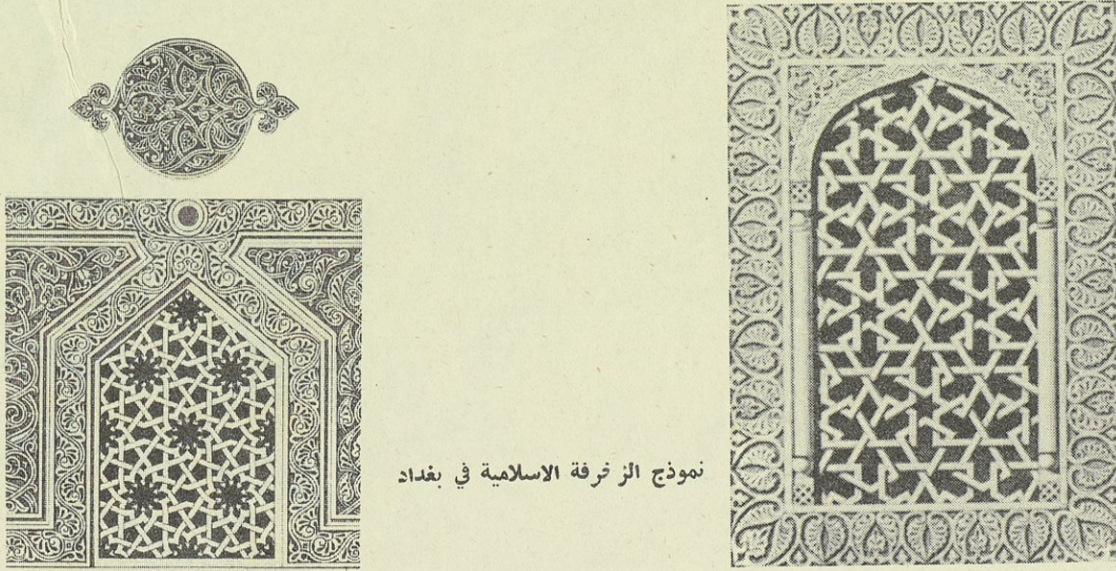 نموذج الزخرفة الاسلامية في بغداد